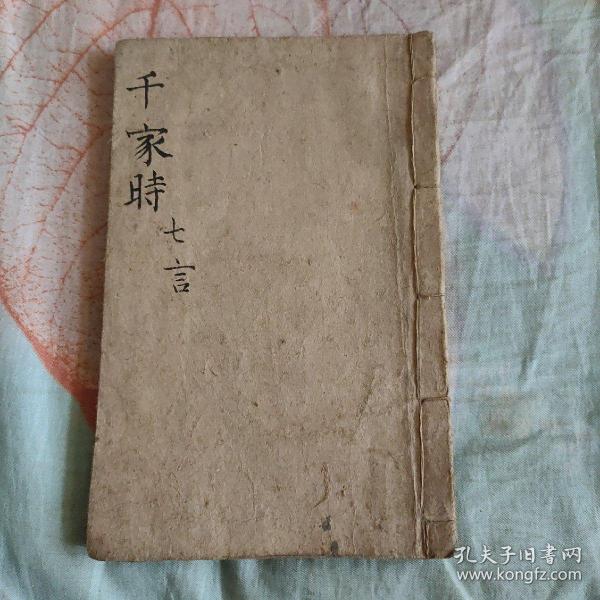 千家時
七言
孔夫子旧书网
www.kongfz.com